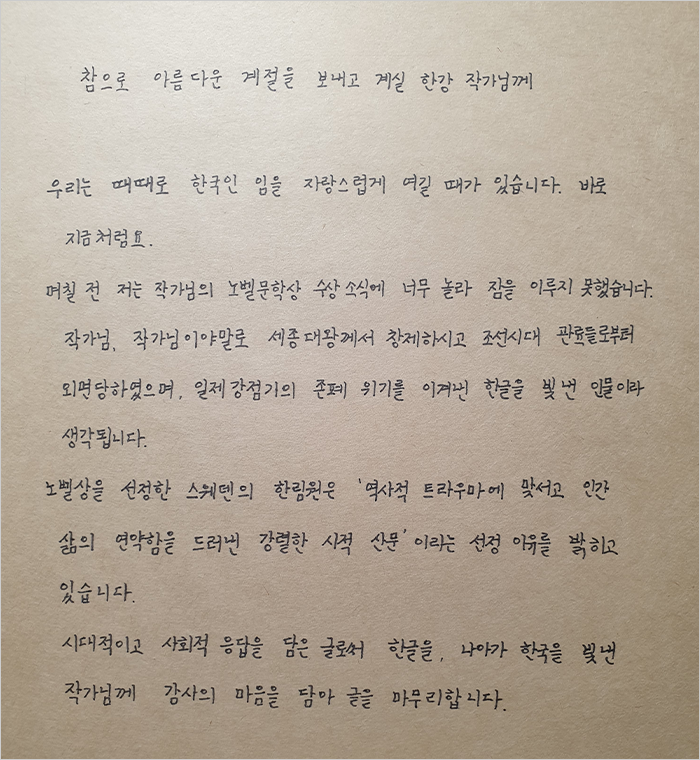 참으로 아름다운 계절을 보내고 계실 한강 작가님께
우리는 때때로 한국인 임을 자랑스럽게 여길 때가 있습니다. 바로
지금처럼요.
며칠 전 저는 작가님의 노벨문학상 수상 소식에 너무 놀라 잠을 이루지 못했습니다.
작가님, 작가님이야말로 세종대왕께서 창제하시고 조선시대 관료들로부터
외면당하였으며, 일제강점기의 존폐 위기를 이겨낸 한글을 빛낸 인물이라
생각됩니다.
노벨상을 선정한 스웨덴의 한림원은 '역사적 트라우마에 맞서고 인간
삶의 연약함을 드러낸 강렬한 시적 산문'이라는 선정 이유를 밝히고
있습니다.
시대적이고 사회적 응답을 담은 글로써 한글을, 나아가 한국을 빛낸
작가님께 감사의 마음을 담아 글을 마무리합니다.